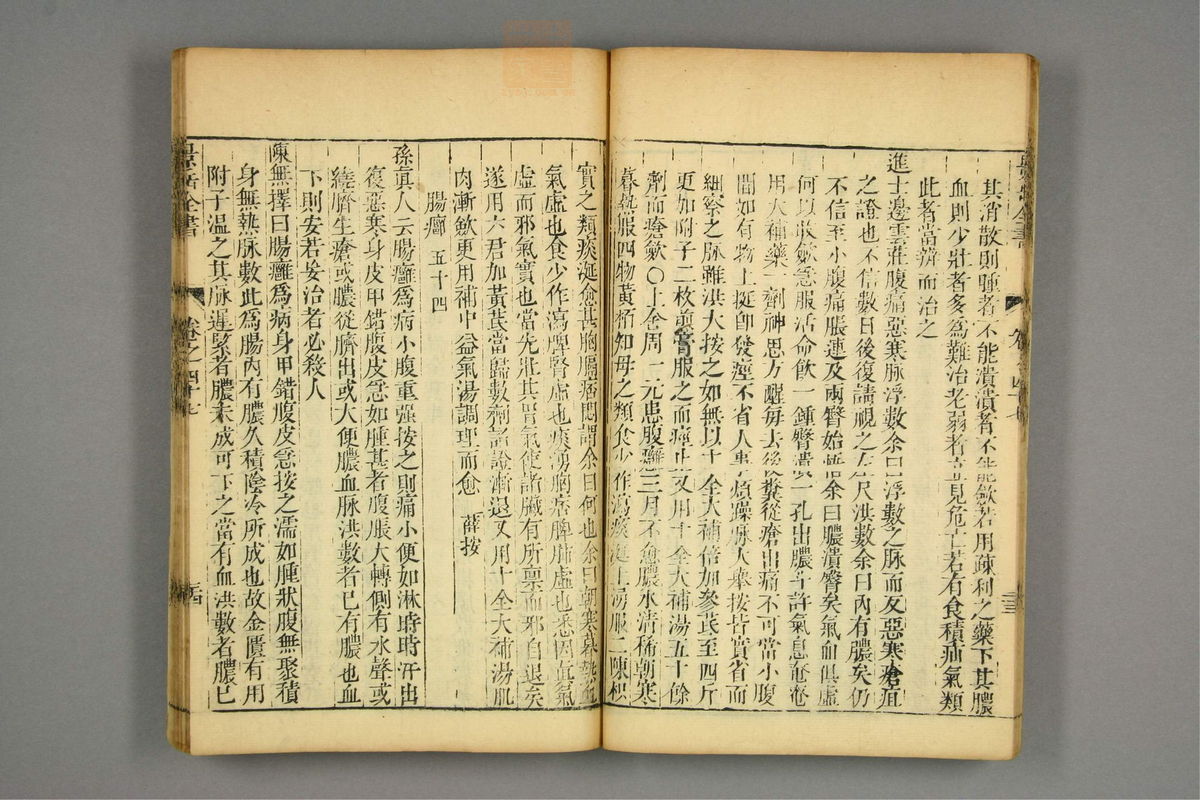 其消散則腫者不能潰潰者不能斂若用疎利之藥下其膿
血則少壯者多為難治老弱者立見危亡若有食積疝氣類
此者當消而治之
進士邊雲莊腹痛惡寒脉浮數余曰浮數之脉而反惡寒瘡疽
之證也不信數日後復請視之左尺洪數余曰內有膿矣仍
不信至小腹痛脹連及兩臀始悟余曰膿潰臀矣氣血俱虛
何以收斂急服活命飲一鍾臀潰一孔出膿斗許氣息奄奄
用大補藥一劑神思方醒每去後糞從瘡出痛不可當小腹
間如有物上挺即發痙不省人事煩躁脉大舉按皆實省而
細察之脉雖洪大按之如無以十全大補倍加參芪至四斤
更加附子二枚煎膏服之而痙止又用十全大補湯五十餘
劑而瘡斂○上舍周一元患腹癰三月不愈膿水清稀朝寒
暮熱服四物黃栢知母之類食少作瀉痰涎上湧服二陳枳
實之類痰涎愈甚胸膈痞悶謂余曰何也余曰朝寒暮熱血
氣虛也食少作瀉脾腎虛也痰湧胸痞脾肺虛也悉因真氣
虛而邪氣實也當先壯其胃氣使諸臟有所禀而邪自退矣
遂用六君加黃芪當歸數劑諸證漸退又用十全大補湯肌
肉漸斂更用補中益氣湯調理而愈 薛按
腸癰 五十四
孫真人云腸癰為病小腹重強按之則痛小便如淋時時汗出
復惡寒身皮甲錯腹皮急如腫甚者腹脹大轉側有水聲或
繞臍生瘡或膿從臍出或大便膿血脉洪數者已有膿也血
下則安若妄治者必殺人
陳無擇曰腸癰為病身甲錯腹皮急按之濡如腫狀腹無聚積
身無熱脉數此為腸內有膿久積陰冷所成也故金匱有用
附子溫之其脉遲緊者膿未成可下之當有血洪數者膿已
景岳全書
卷之四十七